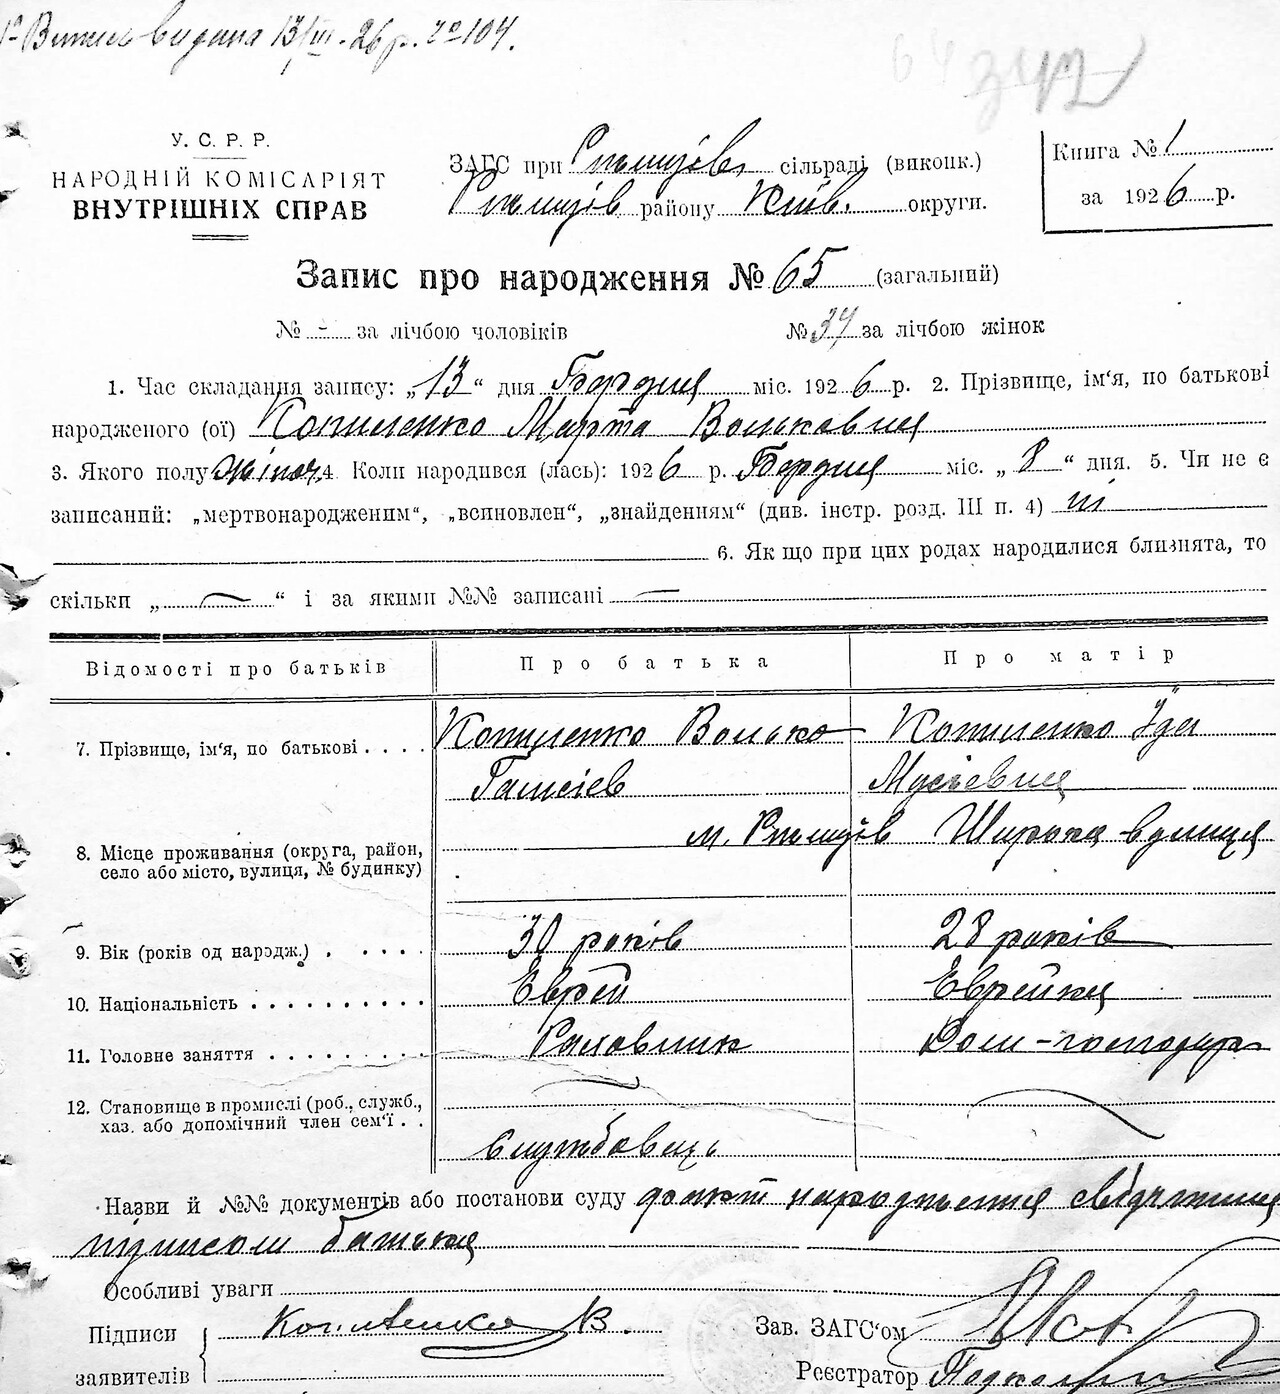 Витяг видана 13/III-26 р. № 104.
342
У. С. Р. Р.
НАРОДНІЙ КОМІСАРІЯТ
ВНУТРІШНІХ СПРАВ
ЗАГС при Ржищів. сільраді (виконк.)
Ржищів району Київ. округи.
Книга № 1
за 1926 р.
Запис про народження № 65 (загальний)
№ - за лічбою чоловіків
№ 34 за лічбою жінок
1. Час складання запису: „13“ дня Березня міс. 1926 р. 2. Прізвище, ім'я, по батькові
народженого (ої) Копиленко Марта Вольковна
3. Якого полу жіноч. 4. Коли народився (лась): 1926 р. Березня міс. „8“ дня. 5. Чи не є
записаний: „мертвонародженим“, „всиновлен“, „знайденням“ (див. інстр. розд. III п. 4) ні
6. Як що при цих родах народилися близнята, то
скільки „ — “ і за якими №№ записані —
Відомості про батьків
Про батька
Про матір
7. Прізвище, ім'я, по батькові . . . .
Копиленко Волько
Копиленко Їда
Мусієвна
8. Місце проживання (округа, район,
село або місто, вулиця, № будинку)
м. Ржищів Широка вулиця
9. Вік (років од народж.) . . . . .
30 років
28 років
10. Національність . . . . . . . . . .
Єврей
Єврейка
11. Головне заняття . . . . . . . . .
Рахівник
Дом-господарка
12. Становище в промислі (роб., служб.,
хаз. або допомічний член сем'ї . .
Службовець
Назви й №№ документів або постанови суду факт народження свідчення
підписом батька
Особливі уваги
Підписи
заявителів
Копиленко В.
Зав. ЗАГС'ом
Реєстратор